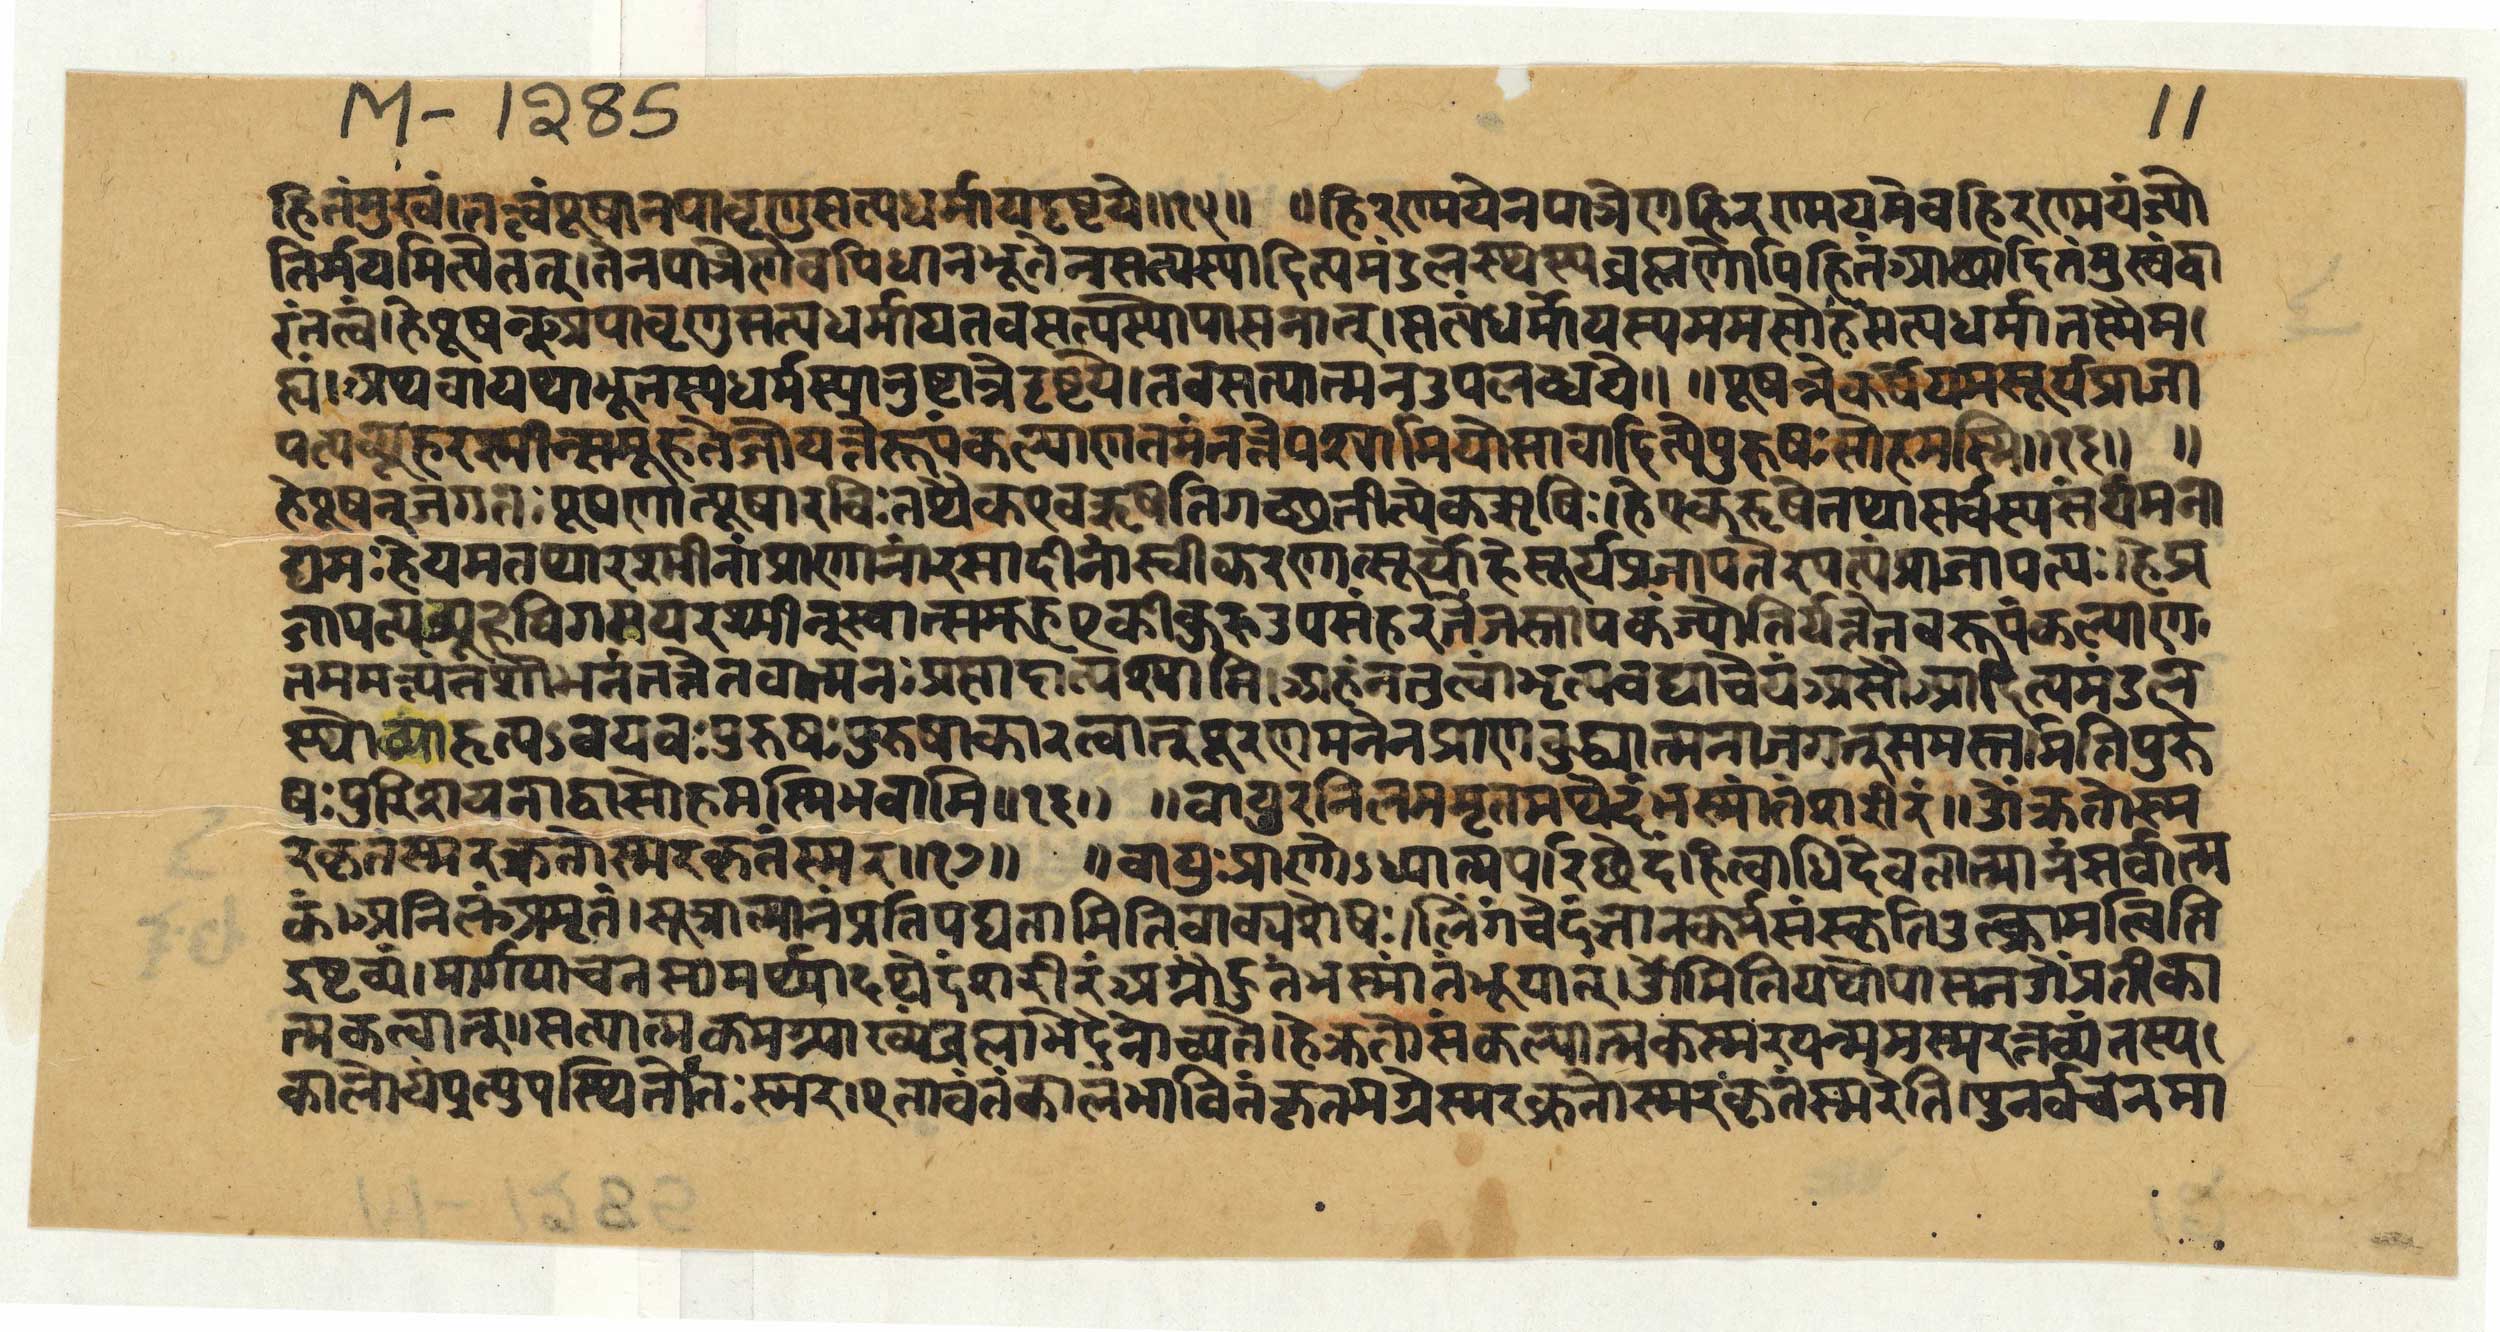 M-1285
11
हितंमुखं।तत्त्वंपूषन्नपावृणुसत्यधर्मायदृष्टये॥१५॥ ॥हिरण्मयेनपात्रेणहिरण्मयमेवहिरण्मयंज्यो
तिर्मयमित्येतत्।तेनपात्रेणैवपिधानभूतेनसत्यस्यादित्यमंडलस्थस्यब्रह्मणोपिहितंआछादितंमुखंद्वा
रंतत्वं।हेपूषन्अपावृणुसत्यधर्मायतवसत्यस्योपासनात्।सत्यंधर्मोयस्यममसोहंसत्यधर्मातस्मैम
ह्यं।अथवायथाभूतस्यधर्मस्यानुष्टात्रेदृष्टये।तवसत्यात्मनउपलब्धये॥ ॥पूषन्नेकर्षेयमसूर्यप्राजा
पत्यव्यूहरश्मीन्समूहतेजोयत्तेरूपंकल्याणतमंतत्तेपश्यामियोसावादित्येपुरुषःसोहमस्मि॥१६॥ ॥
हेपूषन्जगतःपूषणात्पूषारविःतथैकएवऋषतिगछतीत्येकऋषिः।हेएकऋषेतथासर्वस्यसंयमना
द्यमःहेयमतथारश्मीनांप्राणानांरसादीनांस्वीकरणात्सूर्याहेसूर्यप्रजापतेरपत्यंप्राजापत्यः।हेप्र
जापत्यव्यूहविगमयरश्मीन्स्वान्समूहएकीकुरुउपसंहरतेजस्तापकंज्योतिर्यत्तेतवरूपंकल्याण
तममत्यंतशोभनंतत्तेतवात्मनःप्रसादात्पश्यामि।अहंनतुत्वांभृत्यवद्याचेयंअसौआदित्यमंडल
स्थोव्याहृत्यऽवयवःपुरुषःपुरुषाकारत्वात्पूरणमनेनप्राणबुद्ध्यात्मनाजगत्समस्तमितिपुरु
षःपुरिशयनाद्वासोहमस्मिभवामि॥१६॥ ॥वायुरनिलममृतमथेदंभस्मांतंशरीरं॥ओंक्रतोस्म
रकृतंस्मरक्रतोस्मरकृतंस्मर॥१७॥ ॥वायुःप्राणोऽध्यात्मपरिछेदंहित्वाधिदैवतात्मानंसर्वात्म
कं।अनिलंअमृतं।सूत्रात्मानंप्रतिपद्यतामितिवाक्यशेषः।लिंगंचेदंज्ञानकर्मसंस्कृतिउत्क्रामत्विति
द्रष्टव्यं।मार्गयाचनसामर्थ्यादथेदंशरीरंअग्नोहुतंभस्मांतंभूयात्।ओमितियथोपासनगोंप्रतीका
त्मकत्वात्॥सत्यात्मकमग्न्याख्यंब्रह्माभेदेनोच्यते।हेक्रतोसंकल्पात्मकस्मरयन्ममस्मरतव्यंतस्य
कालोयंप्रत्युपस्थितोतःस्मर।एतावंतंकालंभावितंकृतमग्नेस्मरक्रतोस्मरकृतंस्मरेति।पुनर्वचनमा